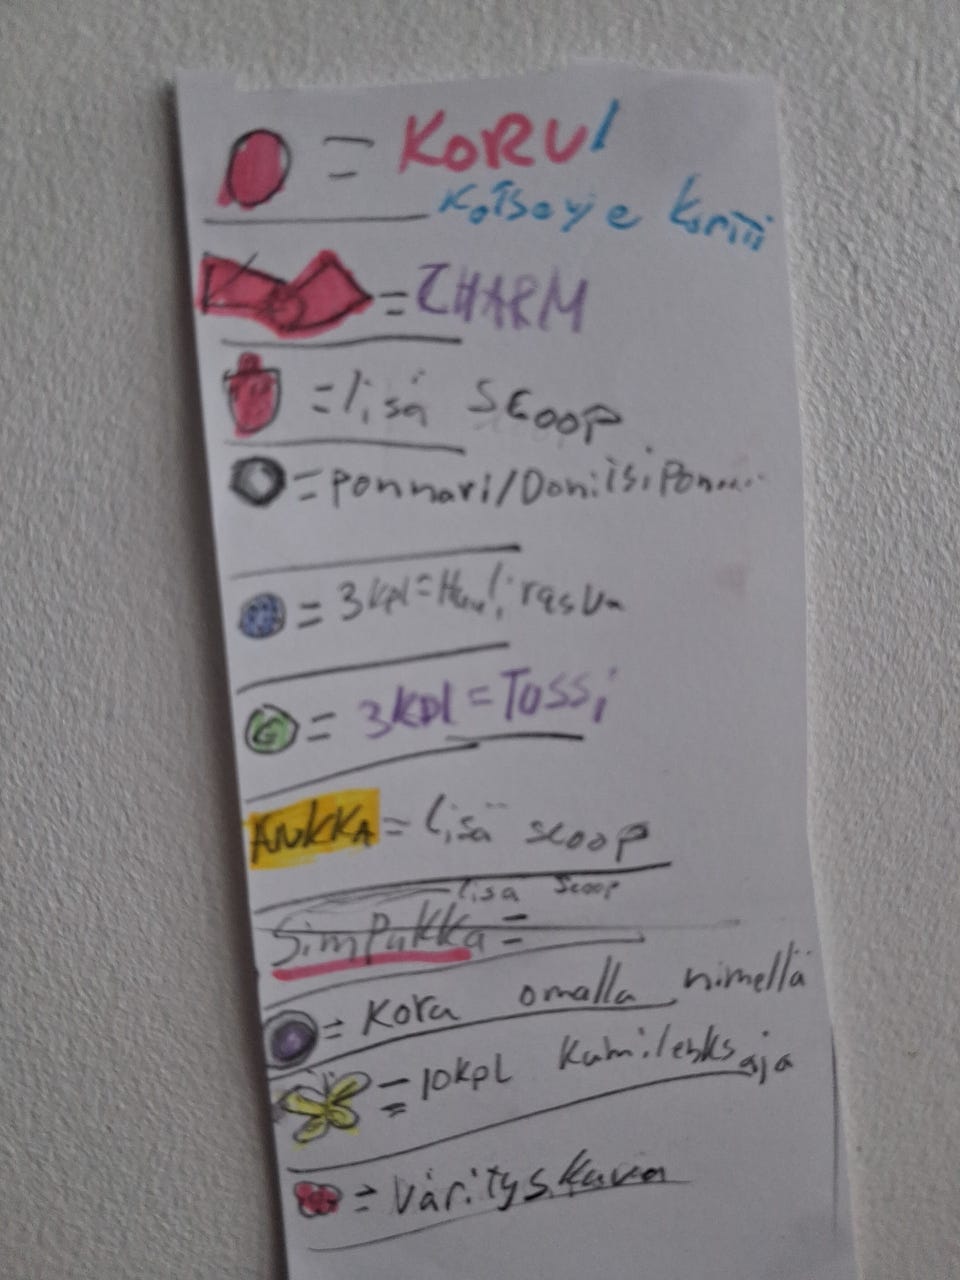 = KORU/
= CHARM
= lisä scoop
= ponnari/Donitsipon....
= 3kpl = Huulirasva
G = 3kpl = Tussi
ANKKA = lisä scoop
lisä scoop
Simpukka =
= Koru omalla nimellä
= 10kpl Kumilenksaja
= Värityskuva